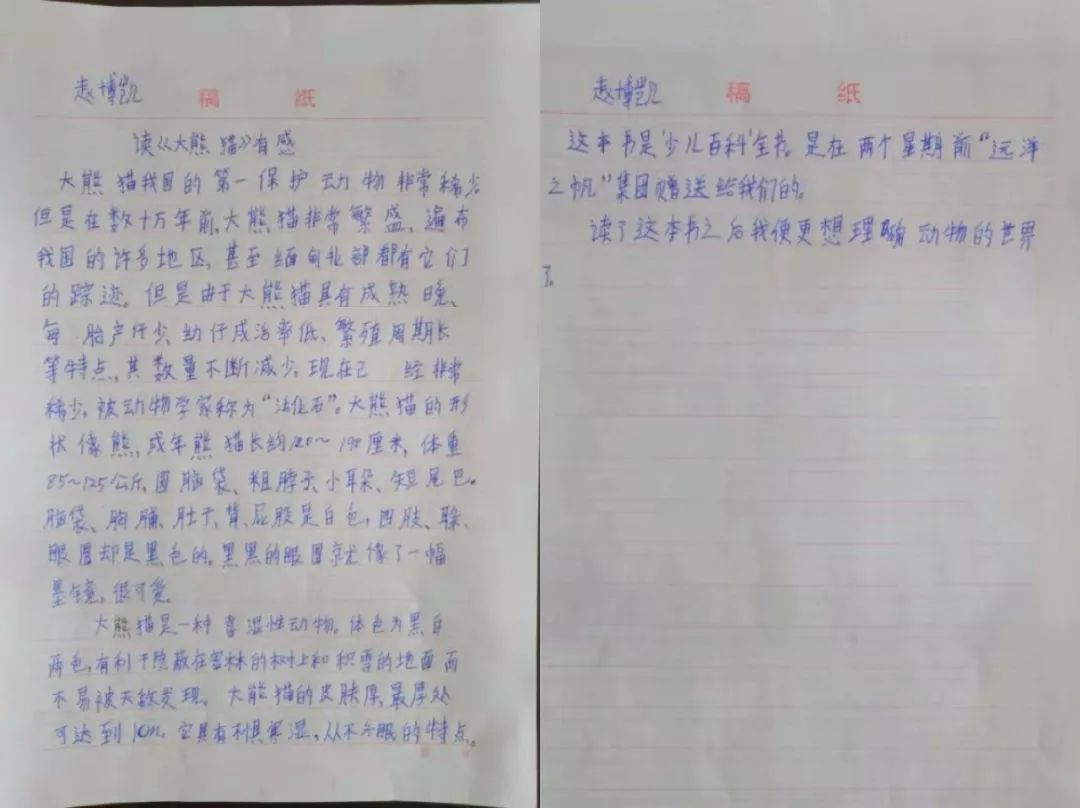 赵博凯 稿 纸
读《大熊猫》有感
大熊猫我国的第一保护动物非常稀少。
但是在数十万年前,大熊猫非常繁盛,遍布
我国的许多地区,甚至缅甸北部都有它们
的踪迹。但是由于大熊猫具有成熟晚、
每胎产仔少、幼仔成活率低、繁殖周期长
等特点,其数量不断减少,现在已经非常
稀少,被动物学家称为“活化石”。大熊猫的形
状像熊,成年熊猫长约120~190厘米,体重
85~125公斤,圆脑袋、粗脖子、小耳朵、短尾巴。
脑袋、胸脯、肚子、背、屁股是白色,四肢、
眼圈却是黑色的。黑黑的眼圈就像了一幅
墨镜,很可爱。
大熊猫是一种喜湿性动物。体色为黑白
两色,有利于隐蔽在密林的树上和积雪的地面而
不易被天敌发现。大熊猫的皮肤厚,最厚处
可达到10m。它具有不惧寒湿,从不冬眠的特点。
赵博凯 稿 纸
这本书是‘少儿百科’全书。是在两个星期前“远洋
之帆”集团赠送给我们的。
读了这本书之后我便更想理 动物的世界
了。